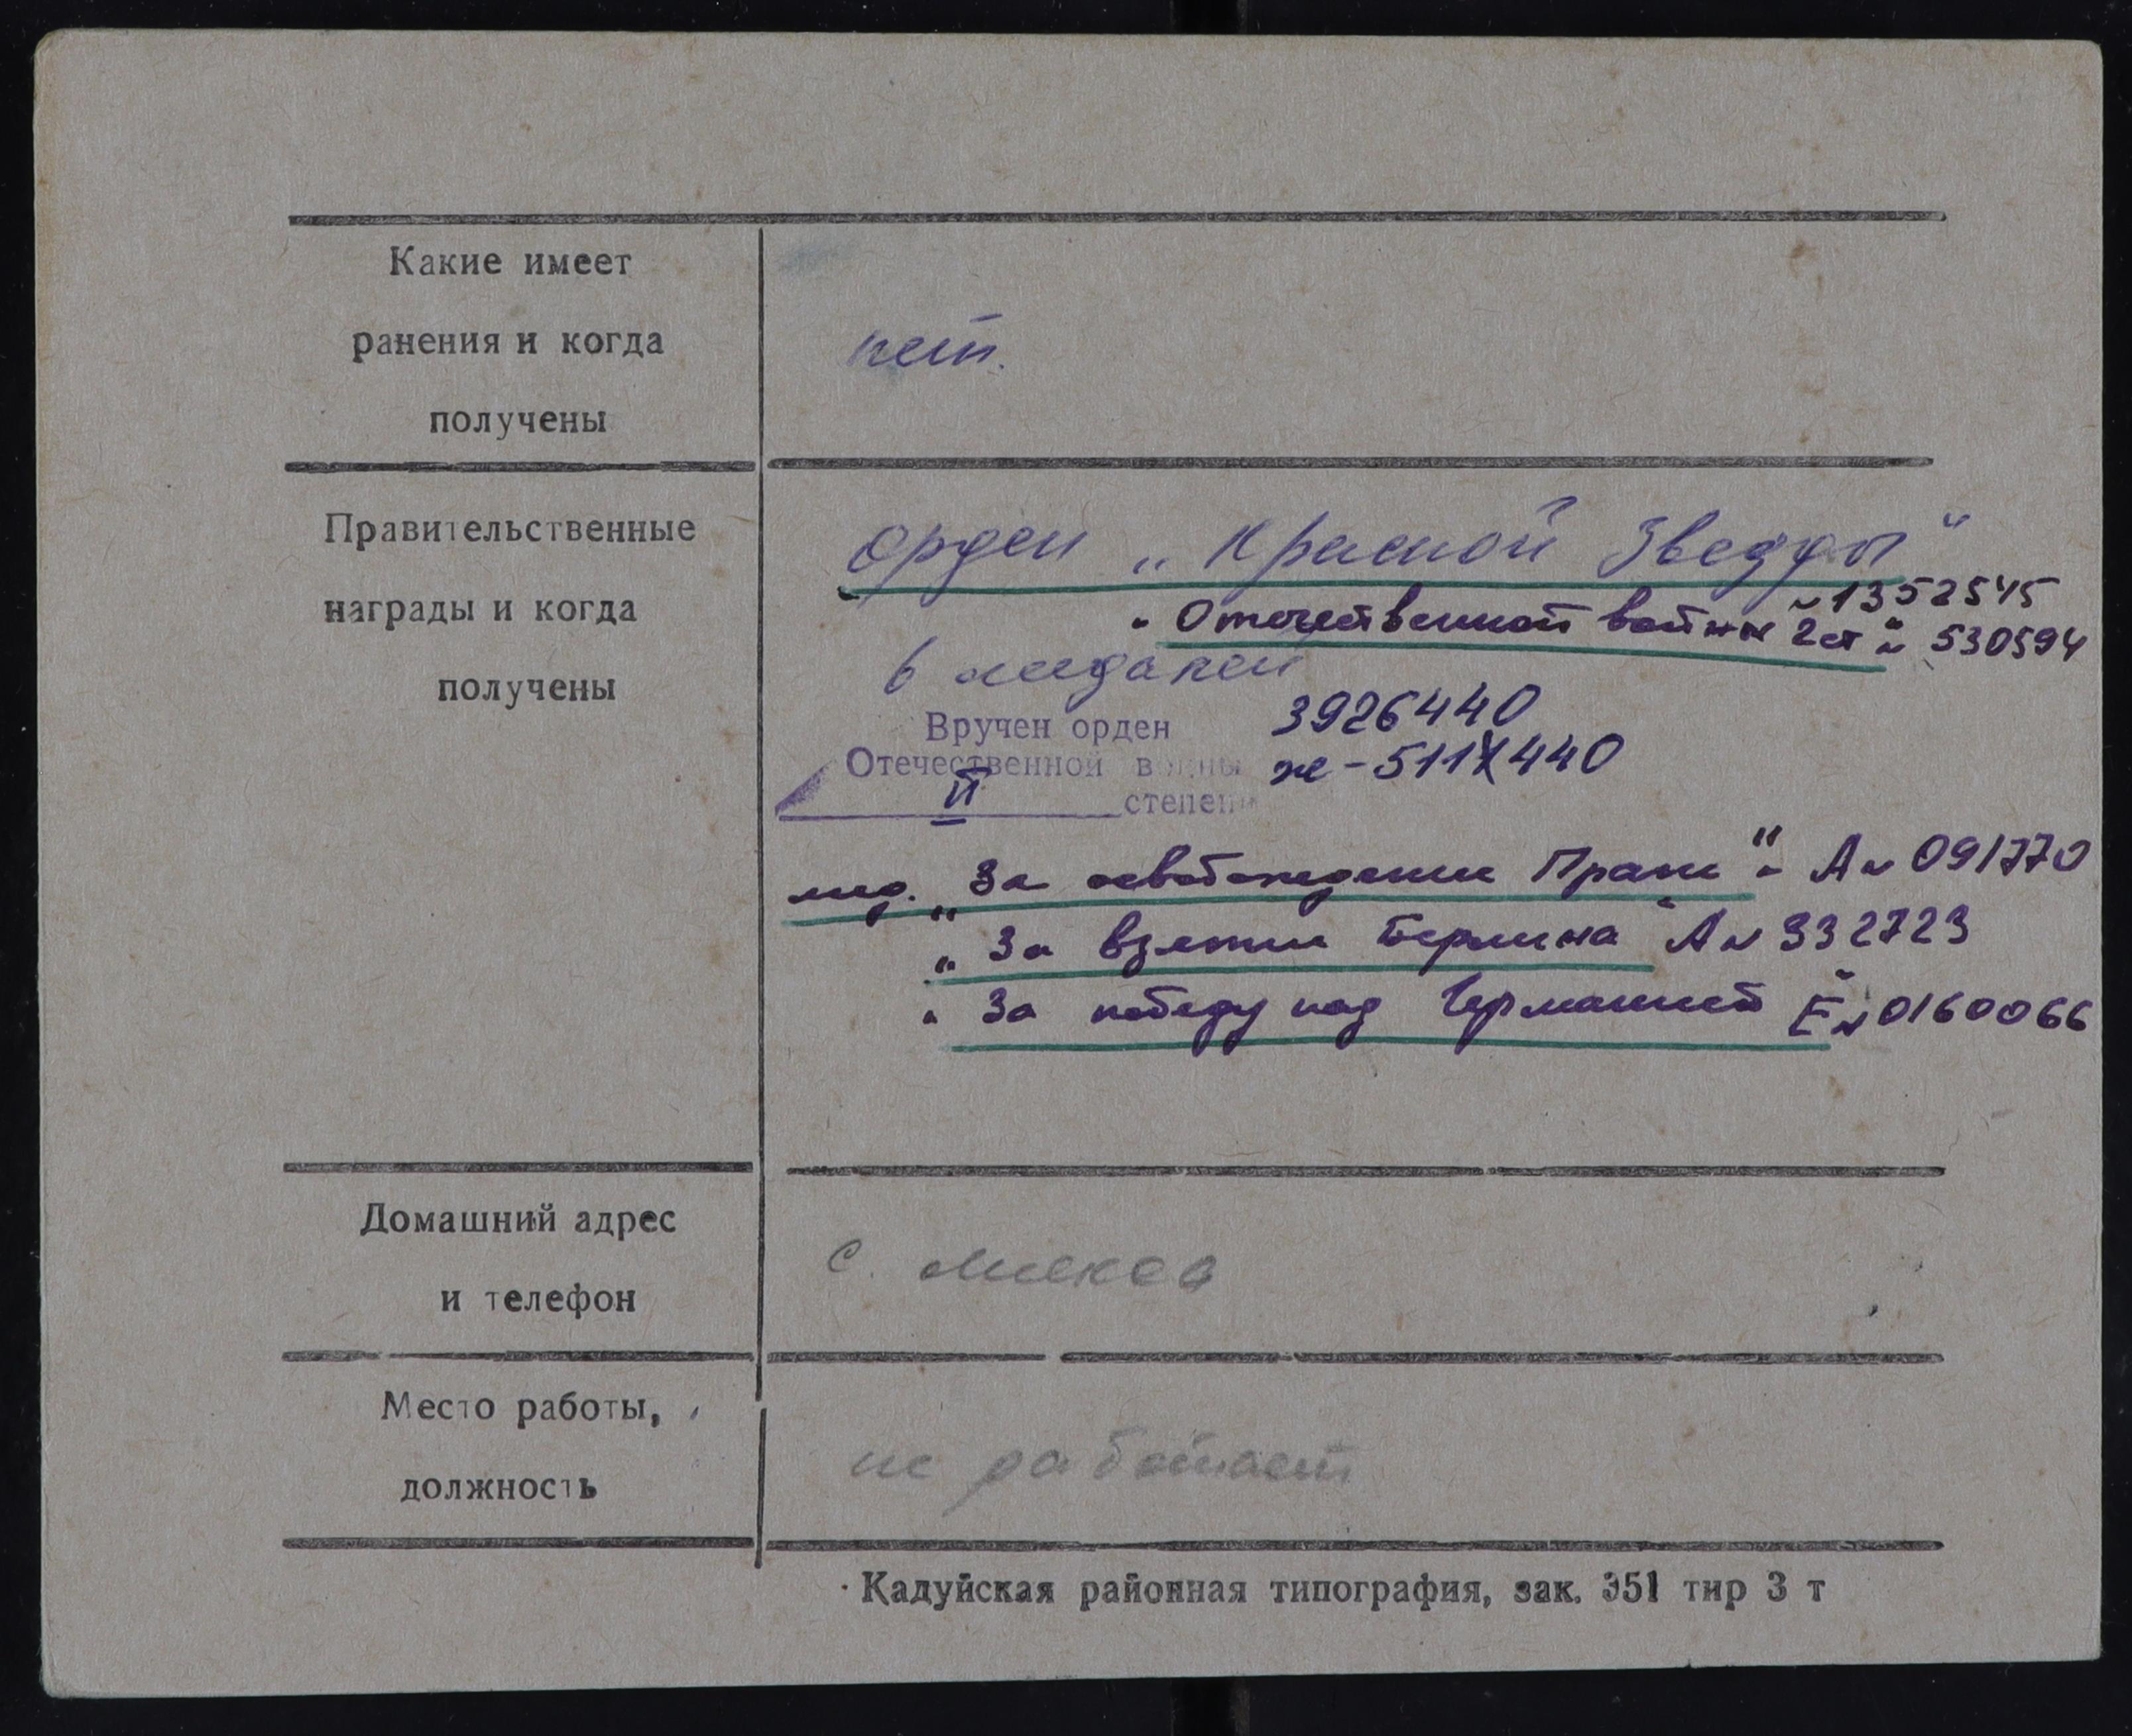 Какие имеет
ранения и когда
получены
нет.
Правительственные
награды и когда
получены
орден „Красной Звезды“
№1352545
" Отечественной войны 2 ст" № 530594
6 медалей
Вручен орден
Отечественной войны
II степени
3926440
же-511 440
мед. „За освобождение Праги" - А№ 091770
„За взятие Берлина" А№ 332723
" За победу над Германией" Е№0160066
Домашний адрес
и телефон
с.
Место работы,
должность
не работает
Кадуйская районная типография, зак. 351 тир 3 т